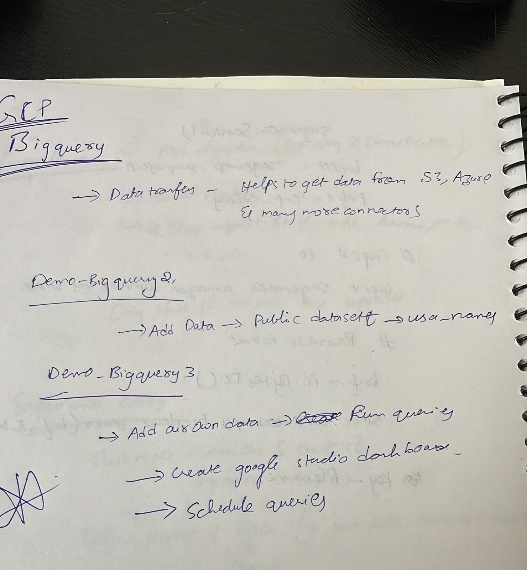 GCP
Bigquery
→ Data tranfer - Helps to get data from S3, Azure
& many more connectors
Demo-Bigquery2,
→ Add Data → Public dataset → usa_names
Demo_Bigquery3
→ Add our own data → Run queries
→ Create google studio dashboard.
→ Schedule queries